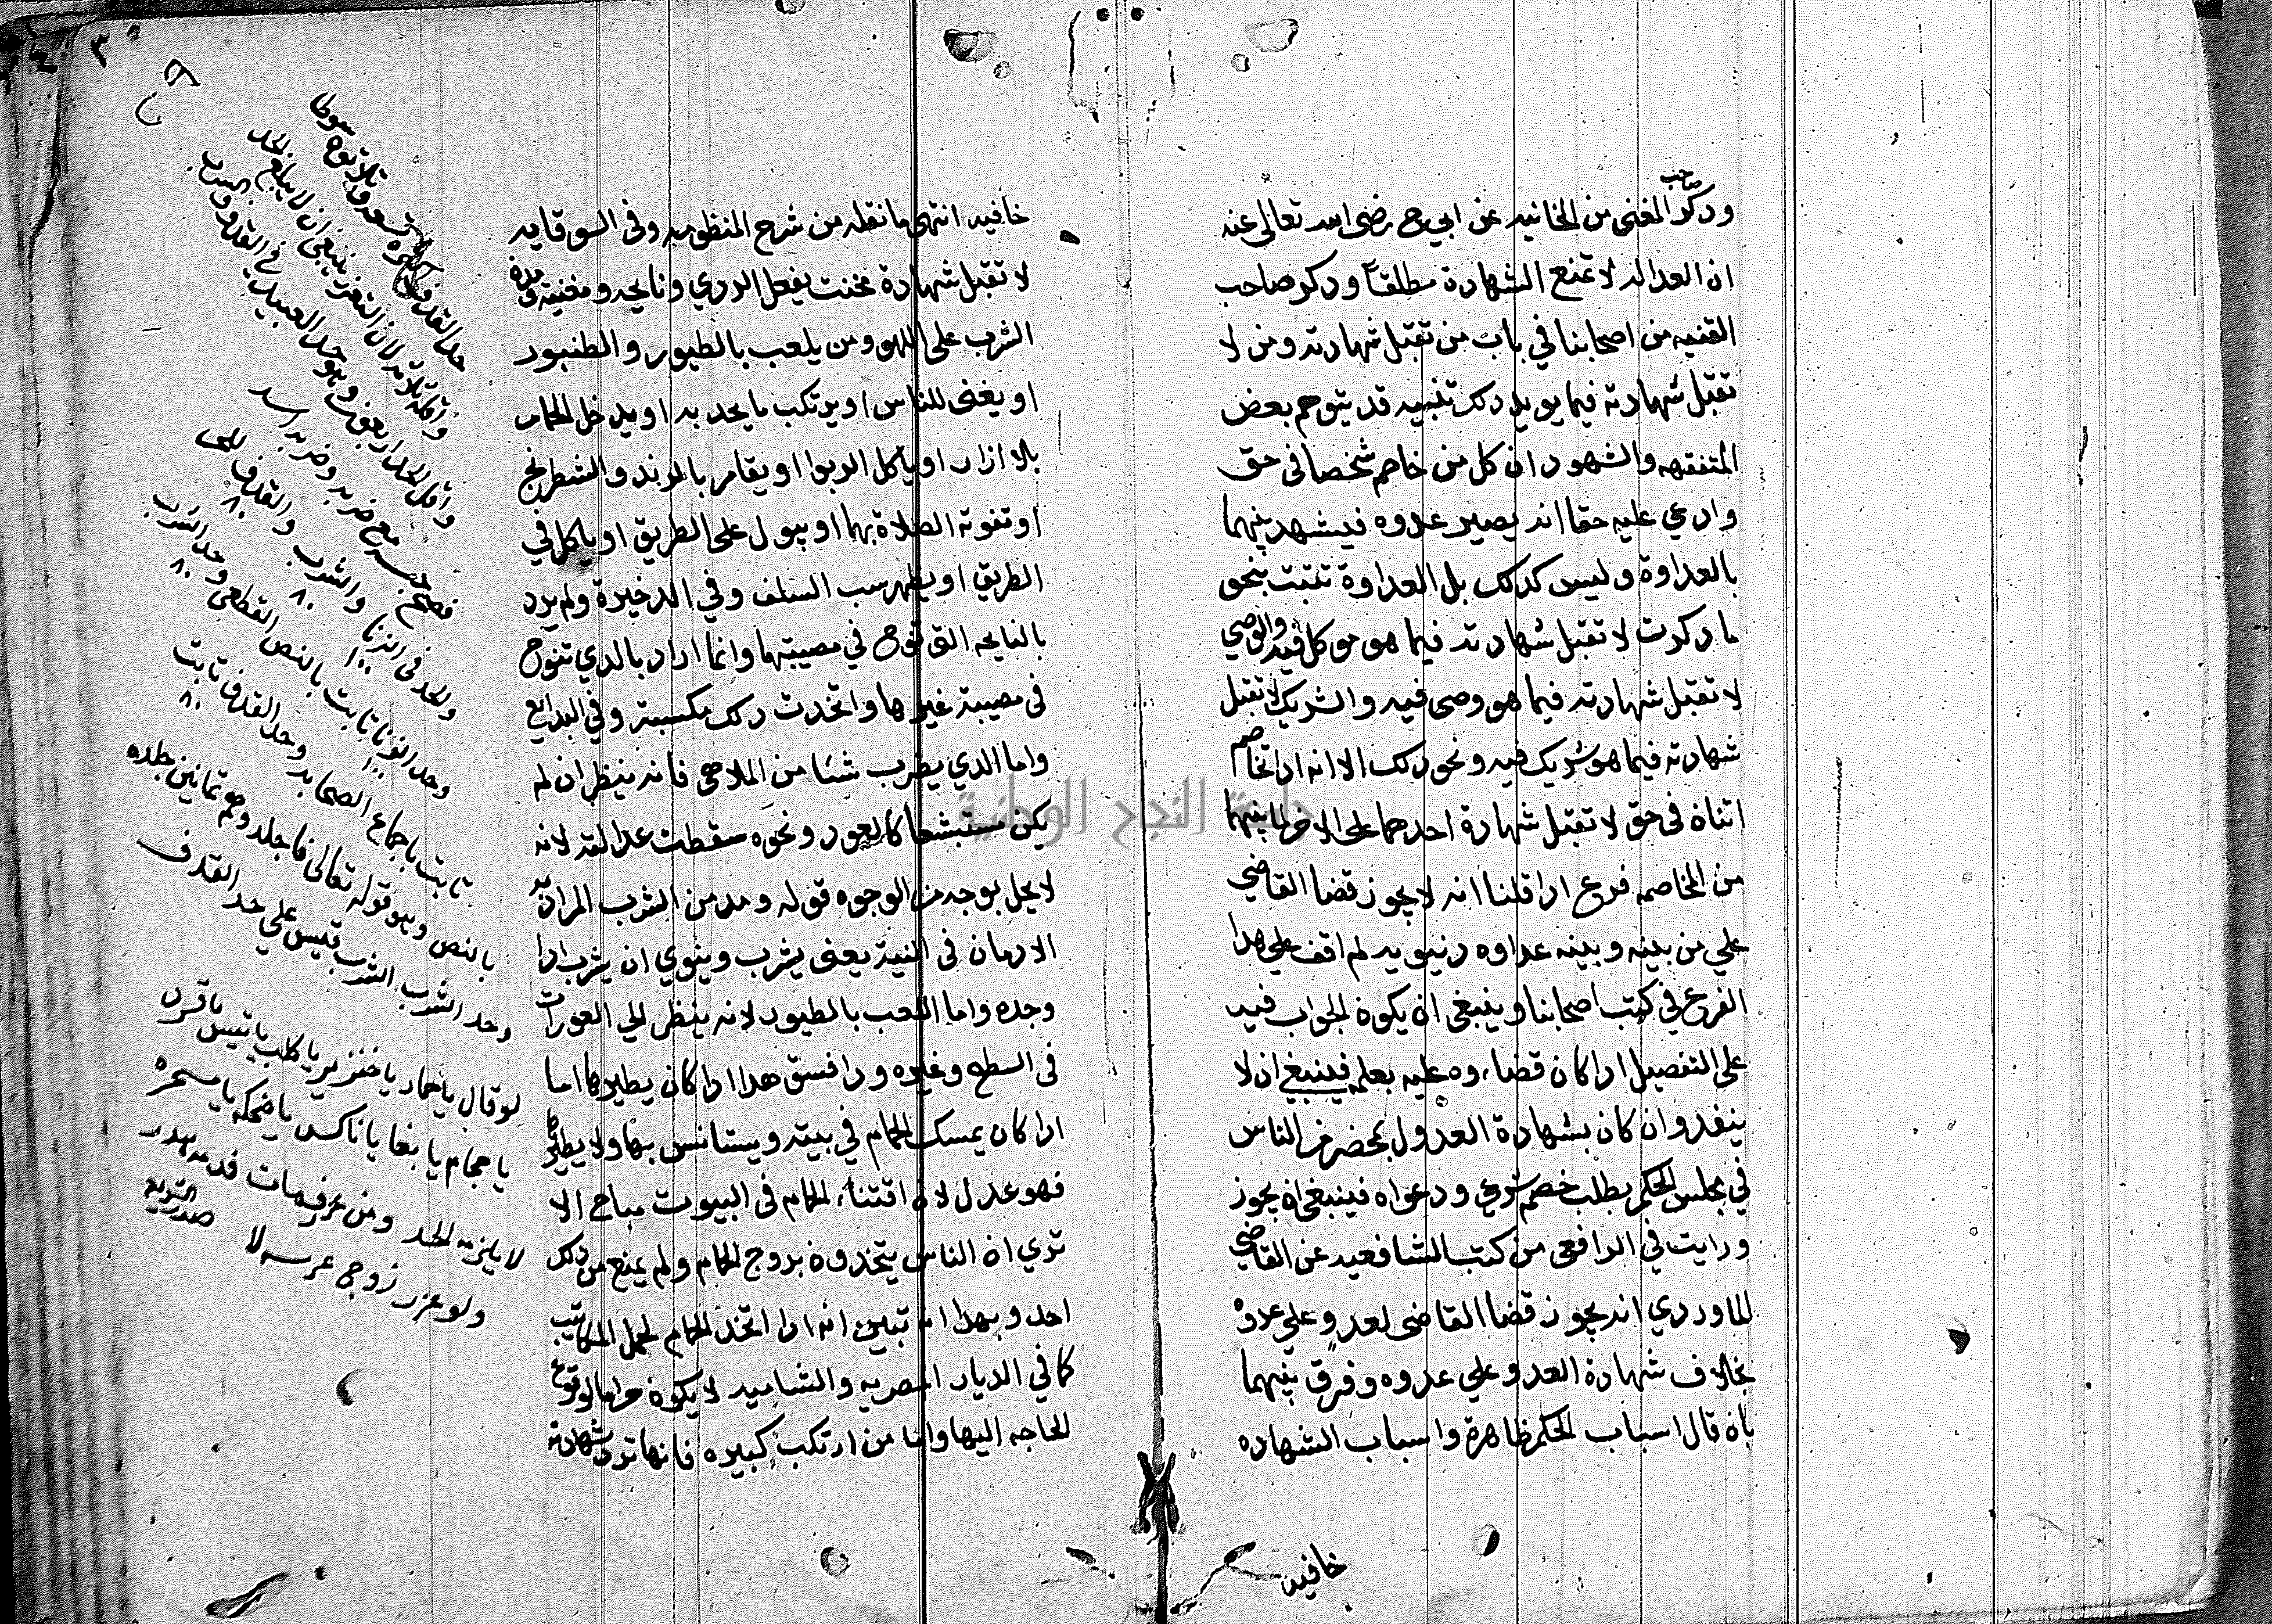 وذكر صاحب المغنى من الخانيه عن ابي ح رضى الله تعالى عنه
ان العداله لا تمنع الشهادة مطلقاً وذكر صاحب
القنيه من اصحابنا في باب من تقبل شهادته ومن لا
تقبل شهادته فيما يويد ذلك تنبيه قد يتوهم بعض
المتفقهه والشهود ان كل من خاصم شخصا في حق
وادعي عليه حقا انه يصير عدوه فيشهد بينهما
بالعداوة وليس كذلك بل العداوة تثبت بنحو
ما ذكرت لا تقبل شهادته فيما هو موكل فيه والوصي
لا تقبل شهادته فيما هو وصى فيه والشريك لا تقبل
شهادته فيما هو شريك فيه ونحو ذلك الا انه اذا تخاصم
اثنان في حق لا تقبل شهادة احدهما على الاخر لما بينهما
من المخاصمه فرع اذا قلنا انه لا يجوز قضا القاضي
علي من بينه وبينه عداوه دنيويه لم اقف علي هذا
الفرع في كتب اصحابنا وينبغى ان يكون الجواب فيه
على التفصيل اذا كان قضاءوه عليه بعلمه فينبغي ان لا
ينفد وان كان بشهادة العدول بمحضر من الناس
في مجلس الحكم بطلب خصم شرعي ودعواه فينبغى ان يجوز
ورايت في الرافعى من كتب الشافعيه عن القاضي
الماوردي انه يجوز قضا القاضى لعدو وعلي عدوه
بخلاف شهادة العدو علي عدوه وفرق بينهما
بان قال اسباب الحكم ظاهرة واسباب الشهاده
خافيه
خافيه انتهى ما نقله من شرح المنظومه وفى السوقايه
لا تقبل شهادة مخنت يفعل الردي ونايحه ومغنيه ومدمن
الشرب على اللهو ومن يلعب بالطيور والطنبور
او يغنى للناس او يرتكب ما يحد به او يدخل الحمام
بلا ازار او يأكل الربوا او يقامر بالنرد والشطرنج
او تفوته الصلاة بهما او يبول على الطريق او ياكل في
الطريق او يظهر سب السلف وفي الدخيرة ولم يرد
بالنايحه التي تنوح في مصيبتها وانما اراد بالدي تنوح
فى مصيبة غيرها واتخدت ذلك مكسبة وفي البدايع
واما الدي يضرب شئا من الملاهى فانه ينظر ان لم
يكن مستبشعا كالعود ونحوه سقطت عدالته لانه
لا يحل بوجه من الوجوه قوله ومدمن الشرب المراد به
الادمان فى النية يعنى يشرب وينوي ان يشرب اذا
وجده واما اللعب بالطيور لانه ينظر الي العورات
فى السطح وغيره ودا فسق هدا اذا كان يطيرها اما
اذا كان يمسك الحمام في بيته ويستانس بها ولا يطيرها
فهو عدل لان اقتناء الحمام فى البيوت مباح الا
تري ان الناس يتخذون بروج الحمام ولم يمنع من ذلك
احد وبهدا انه تبين انه اذا اتخذ الحمام لحمل المكاتيب
كما في الديار المصريه والشاميه لا يكون حراما لوقوع
الحاجه اليها واما من ارتكب كبيره فانها ترد شهادته
فصح حبسه مع ضربه وضربه اشد
والحد فى الزنا والشرب والقدف الحق
١٠٠ ٨٠ ٨٠
وحد الزنا ثابت بالنص القطعى وحد الشرب
١٠٠ ٨٠
ثابت باجماع الصحابه وحد القدف ثابت
٨٠
بالنص وهو قوله تعالى فاجلدوهم ثمانين جلده
وحد الشرب قيس علي حد القدف
لو قال يا حمار يا خنزير يا كلب يا تيس يا قرد
يا حجام يا بغا يا ناكس يا ضحكه يا مسخره
لا يلزمه الحد ومن عزر فمات فدمه هدر
ولو عزر زوج عرسه لا صدر الشريعه